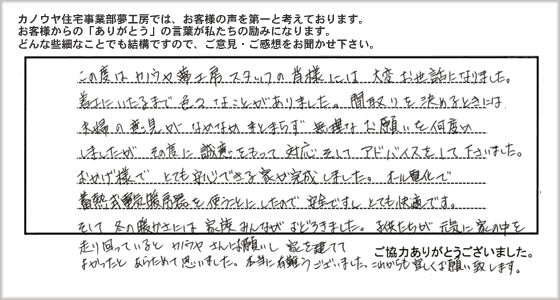 カノウヤ住宅事業部夢工房では、お客様の声を第一と考えております。
お客様からの「ありがとう」の言葉が私たちの励みになります。
どんな些細なことでも結構ですので、ご意見・ご感想をお聞かせ下さい。
この度は カノウヤ夢工房 スタッフの皆様には 大変お世話になりました。
着工にいたるまで 色々なことがありました。間取りを決めるときには
夫婦の意見が なかなか まとまらず 無理な お願いを何度か
しましたが その度に 誠意をもって対応 そして アドバイスをして下さいました。
おかげ様で とても安心できる家が完成しました。オール電化で
蓄熱式電気暖房器を使うことにしたので 安全ですし とても快適です。
そして 冬の暖かさには 家族みんながおどろきました。子供たちが 元気に 家の中を
走り回っていると カノウヤさんにお願いし 家を建てて
よかったと あらためて思いました。本当に有難うございました。これからも宜しくお願い致します。
ご協力ありがとうございました。